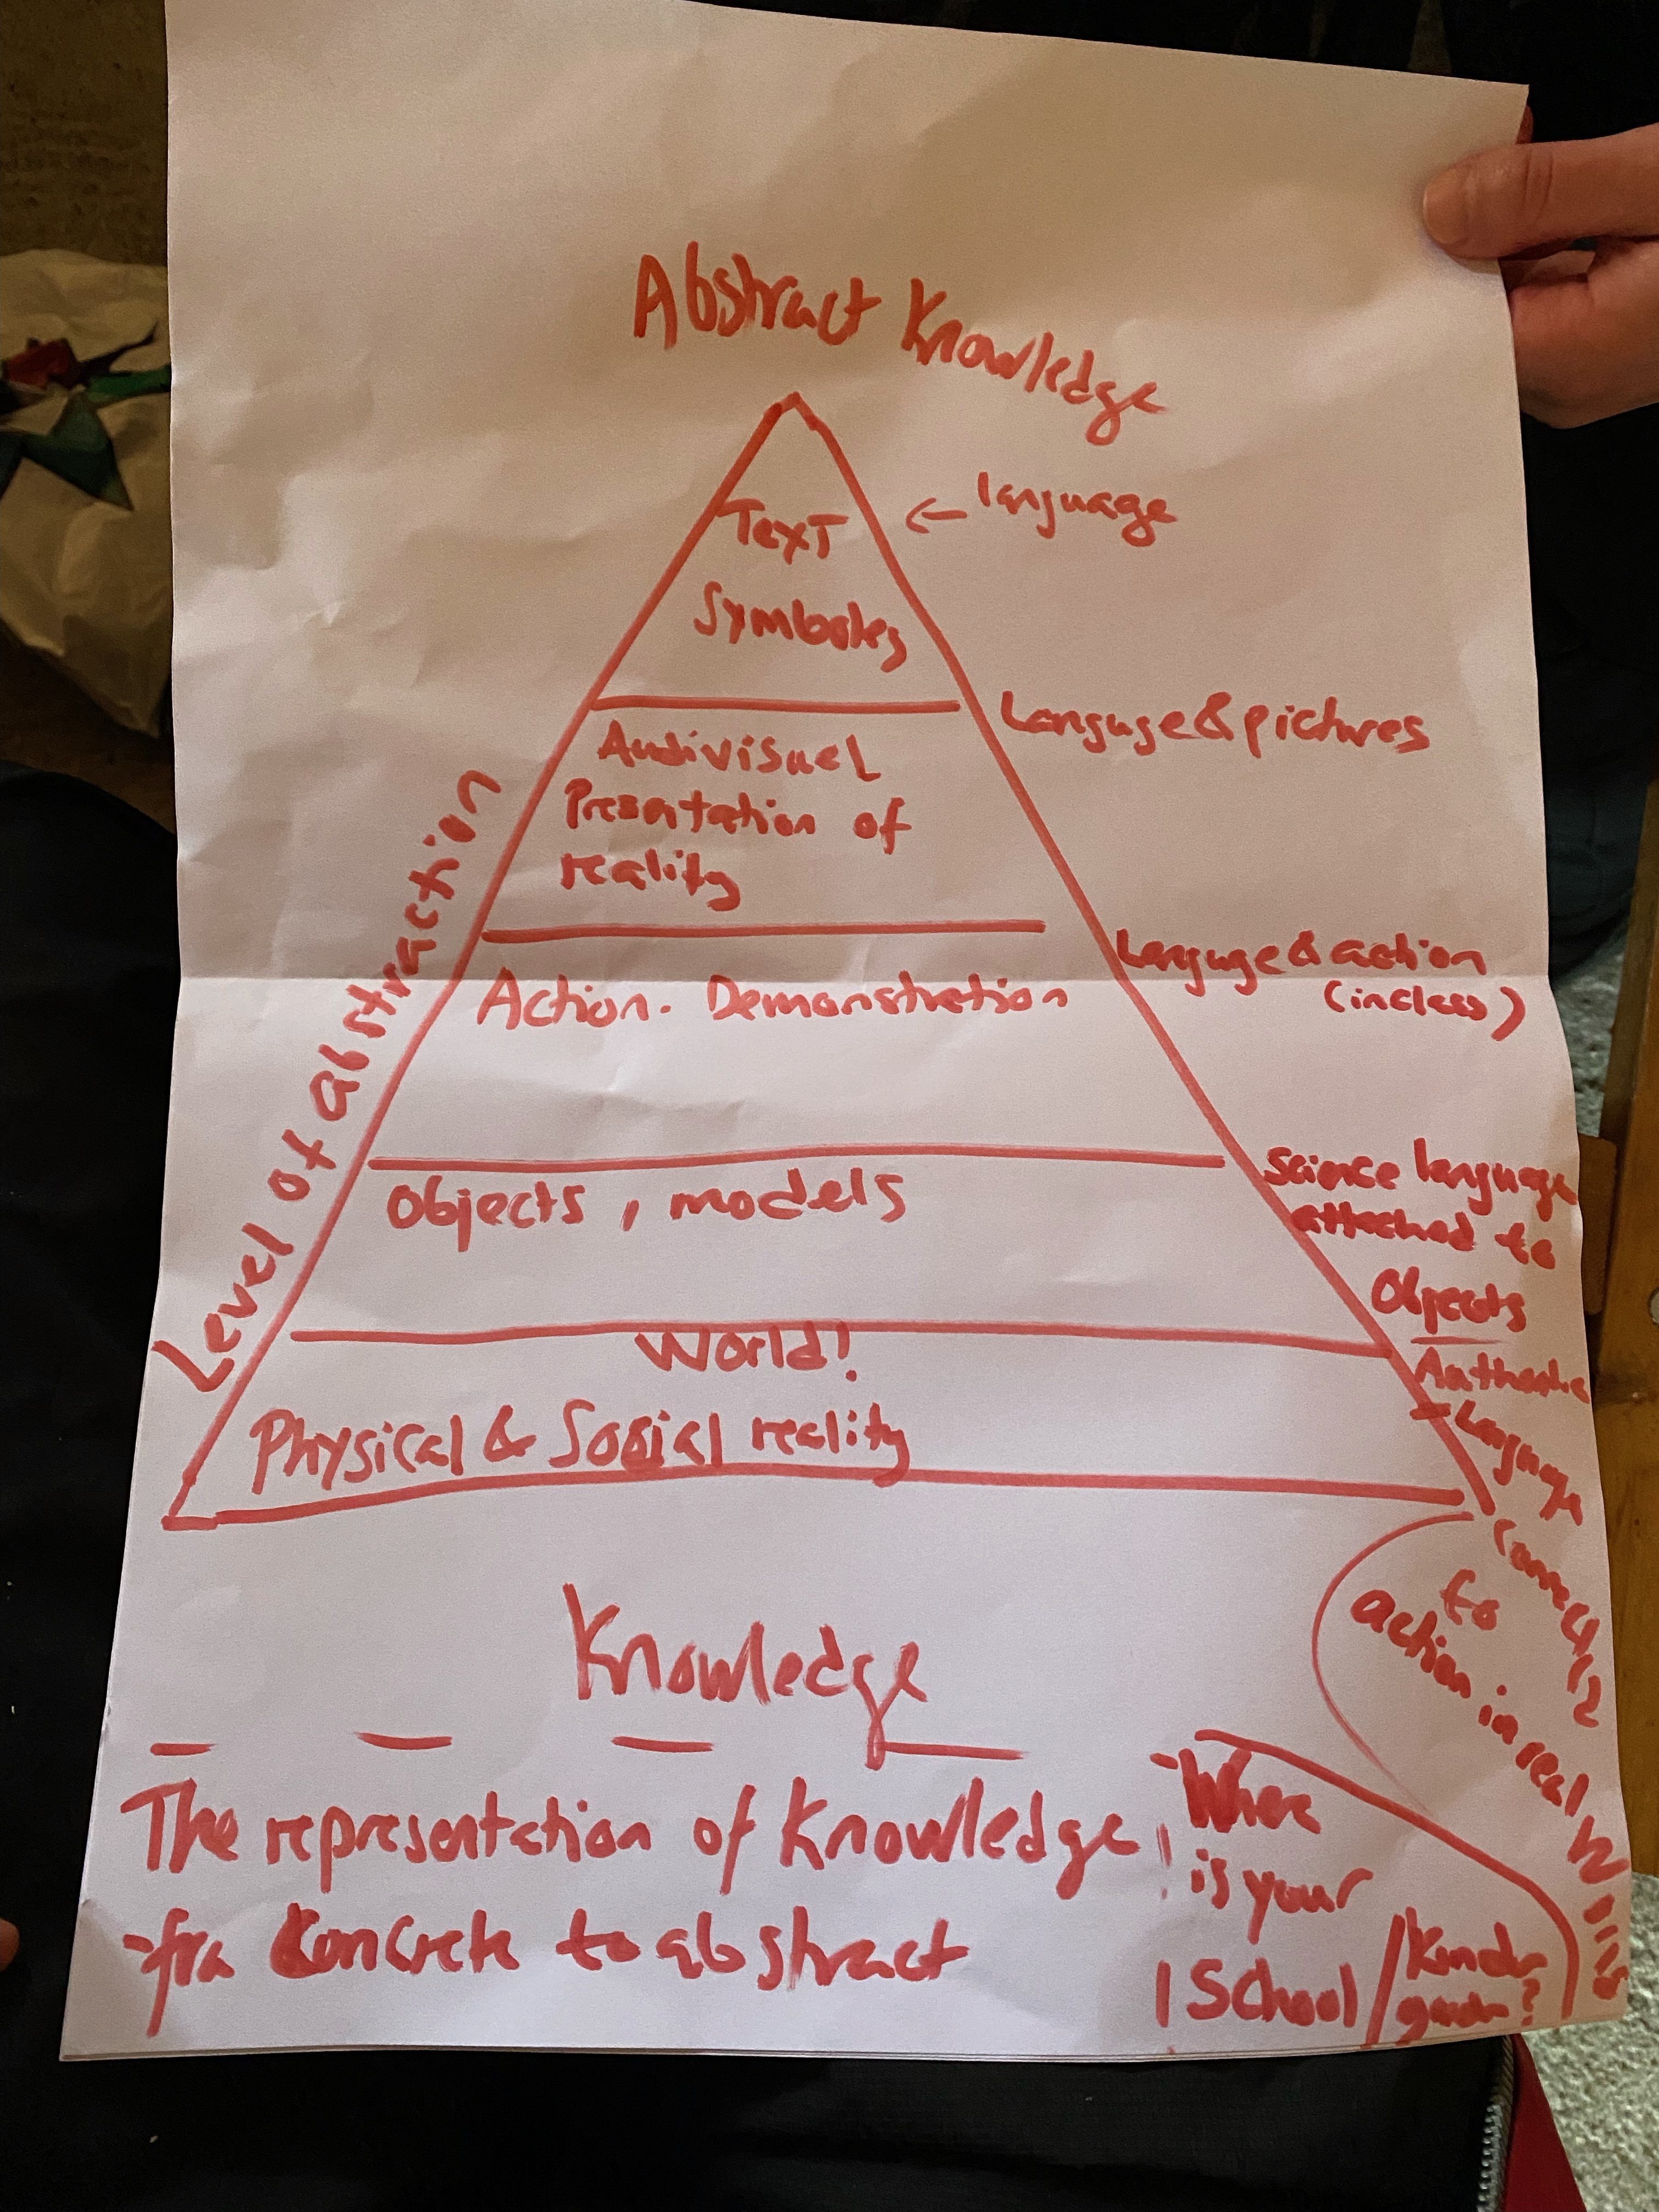 Abstract Knowledge
Text
← language
Symboles
Language & pictures
Audivisuel
Presentation of
reality
Level of abstraction
Languge & action
(in class)
Action. Demonstration
Science language
attached to
Objects
Objects, models
World!
Physical & Social reality
Authentic
Language
to
action in real
Knowledge
The representation of Knowledge
-fra Koncrete to abstract
Where
is your
School/Kinder
garden?